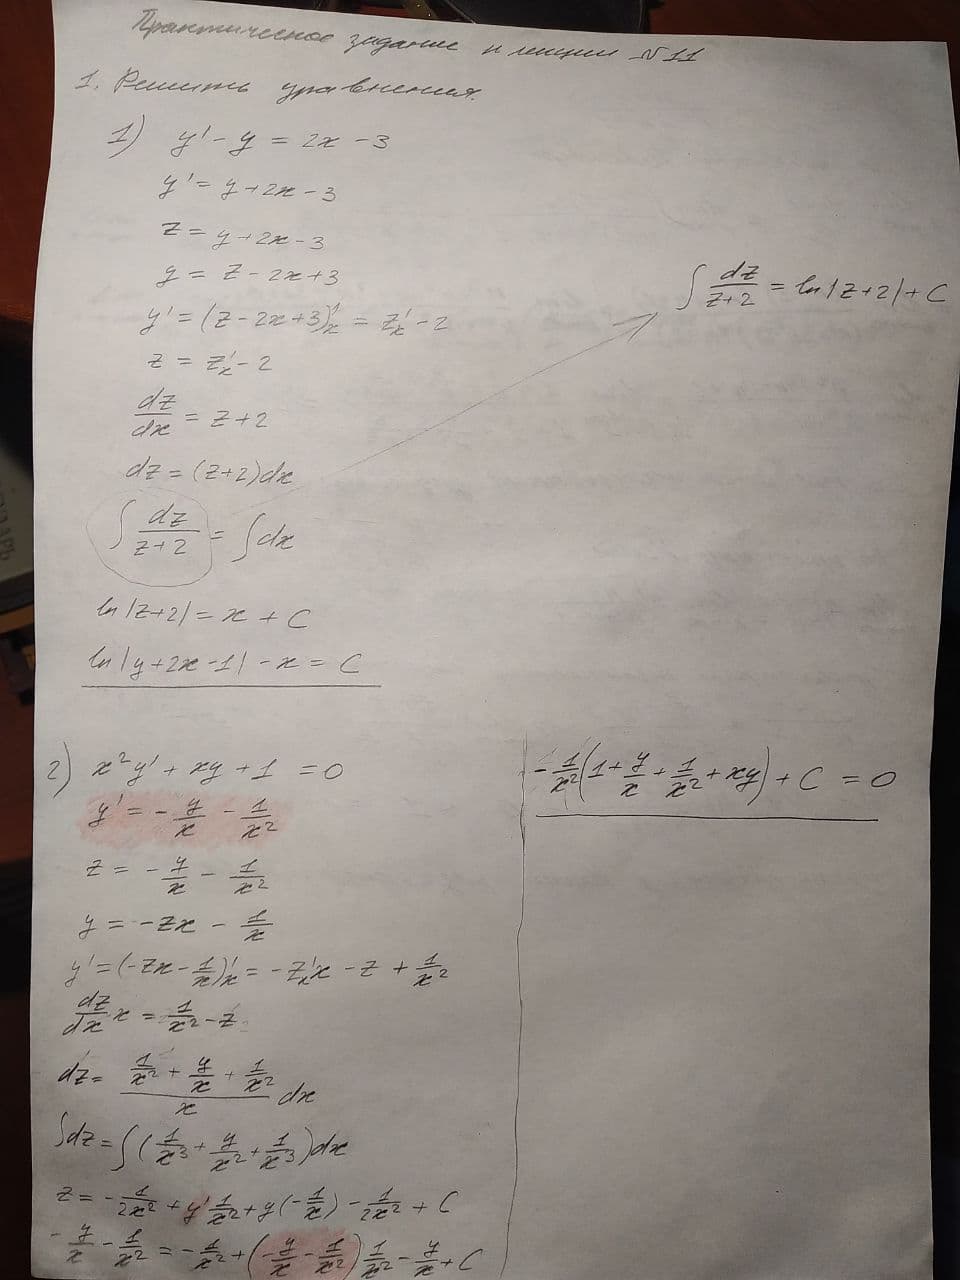 Практическое задание к лекции №11
1. Решить уравнения.
1) y' - y = 2x - 3
y' = y + 2x - 3
z = y + 2x - 3
y = z - 2x + 3
y' = (z - 2x + 3)'ₓ = z'ₓ - 2
z = z'ₓ - 2
dz/dx = z + 2
dz = (z+2)dx
∫ dz/(z+2) = ∫dx
∫ dz/(z+2) = ln|z+2| + C
ln|z+2| = x + C
ln|y+2x-1| - x = C
2) x²y' + xy + 1 = 0
y' = - y/x - 1/x²
z = - y/x - 1/x²
y = -zx - 1/x
y' = (-zx - 1/x)'ₓ = -z'ₓx - z + 1/x²
dz/dx x = 1/x² - z
dz = (1/x² + y/x + 1/x²)/x dx
∫dz = ∫(1/x³ + y/x² + 1/x³)dx
z = - 1/2x² + y' 1/x² + y(- 1/x) - 1/2x² + C
- y/x - 1/x² = - 1/x² + (- y/x - 1/x²) 1/x² - y/x + C
- 1/x² (1 + y/x + 1/x² + xy) + C = 0